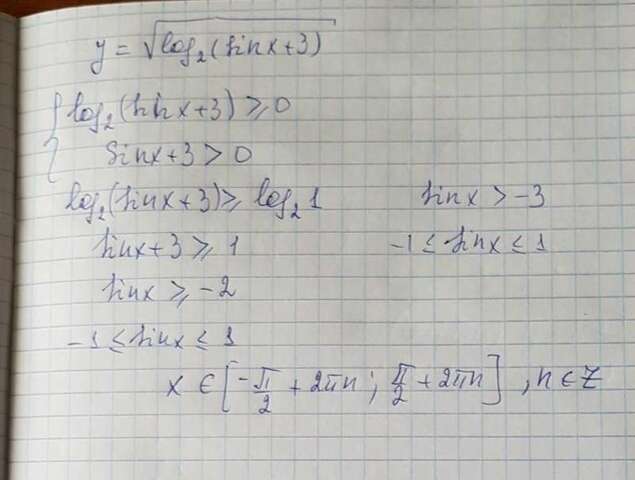 y = √log₂(sinx+3)
{ log₂(sinx+3) ⩾ 0
sinx+3 > 0
log₂(sinx+3) ⩾ log₂1 sinx > -3
sinx+3 ⩾ 1 -1 ≤ sinx ≤ 1
sinx ⩾ -2
-1 ≤ sinx ≤ 1
x ∈ [-π/2 + 2πn ; π/2 + 2πn] , n ∈ Z